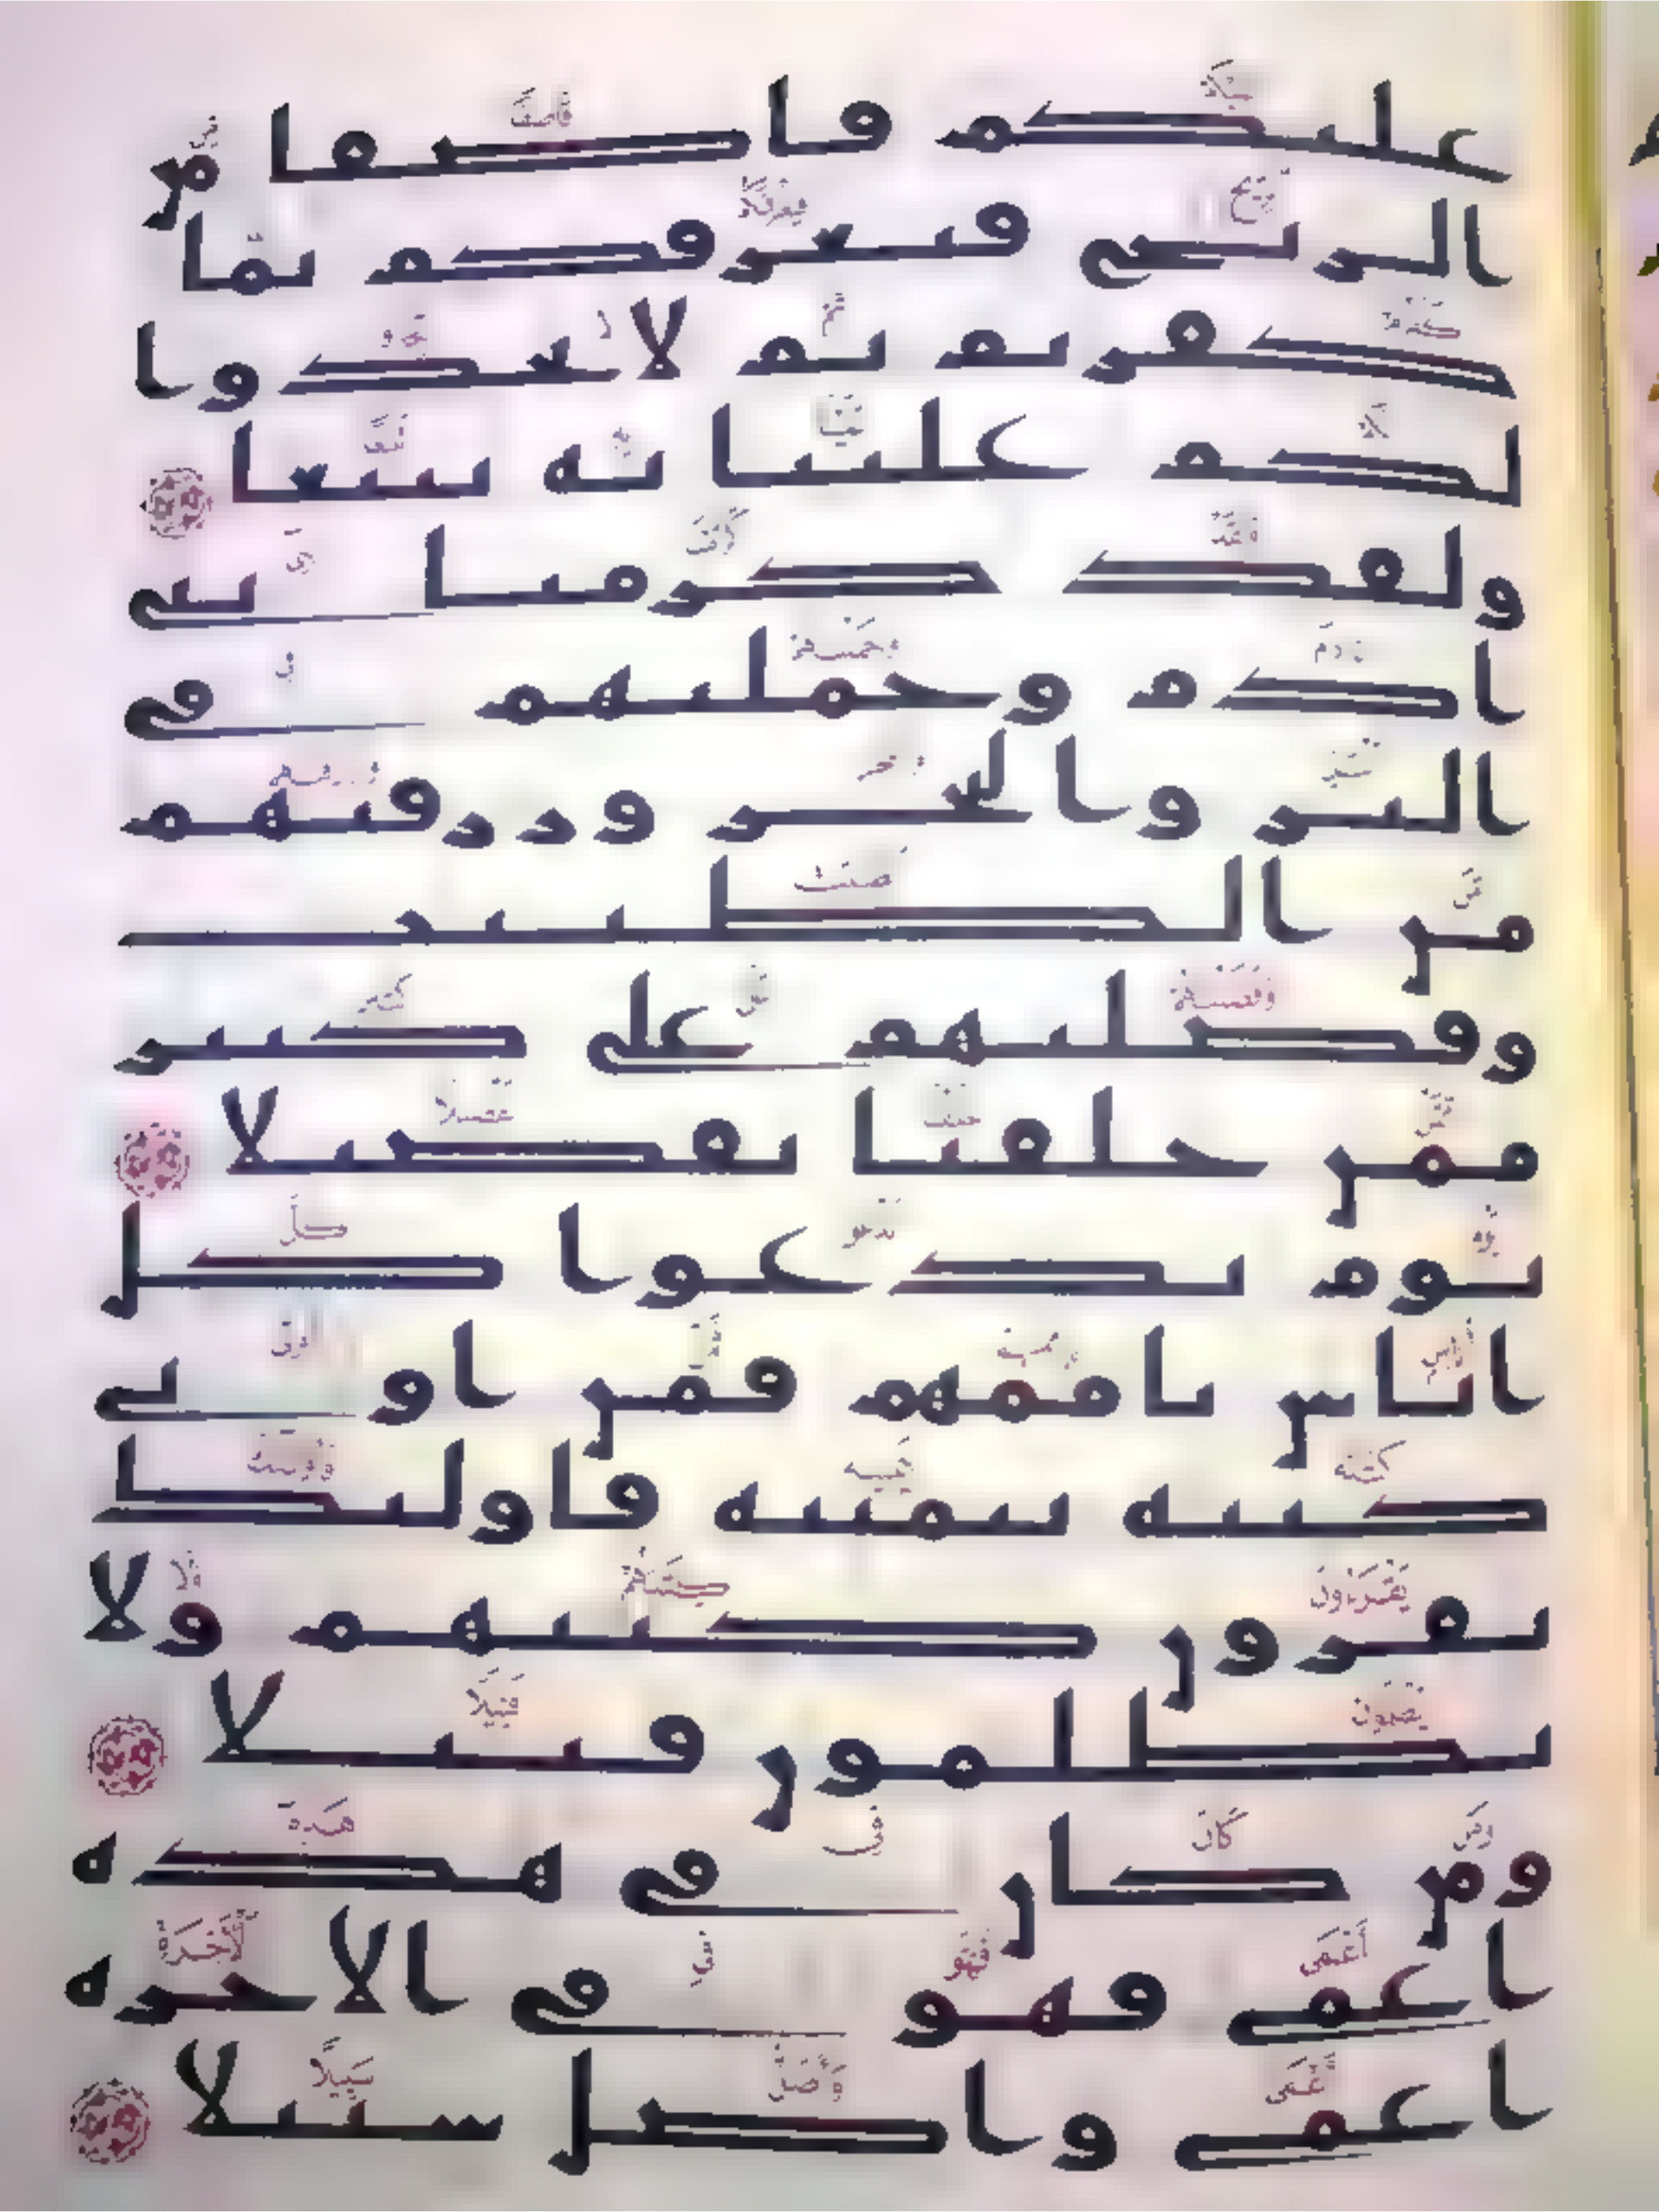 عليكم قاصفا من
الريح فيغرقكم بما
كفرتم ثم لا تجدوا
لكم علينا به تبيعا
ولقد كرمنا بني
ادم وحملنهم في
البر والبحر ورزقنهم
من الطيبت
وفضلنهم على كثير
ممن خلقنا تفضيلا
يوم ندعوا كل
اناس باممهم فمن اوتي
كتبه بيمينه فاولئك
يقرون كتبهم ولا
يظلمون فتيلا
ومن كان في هذه
اعمى فهو في الاخره
اعمى واضل سبيلا